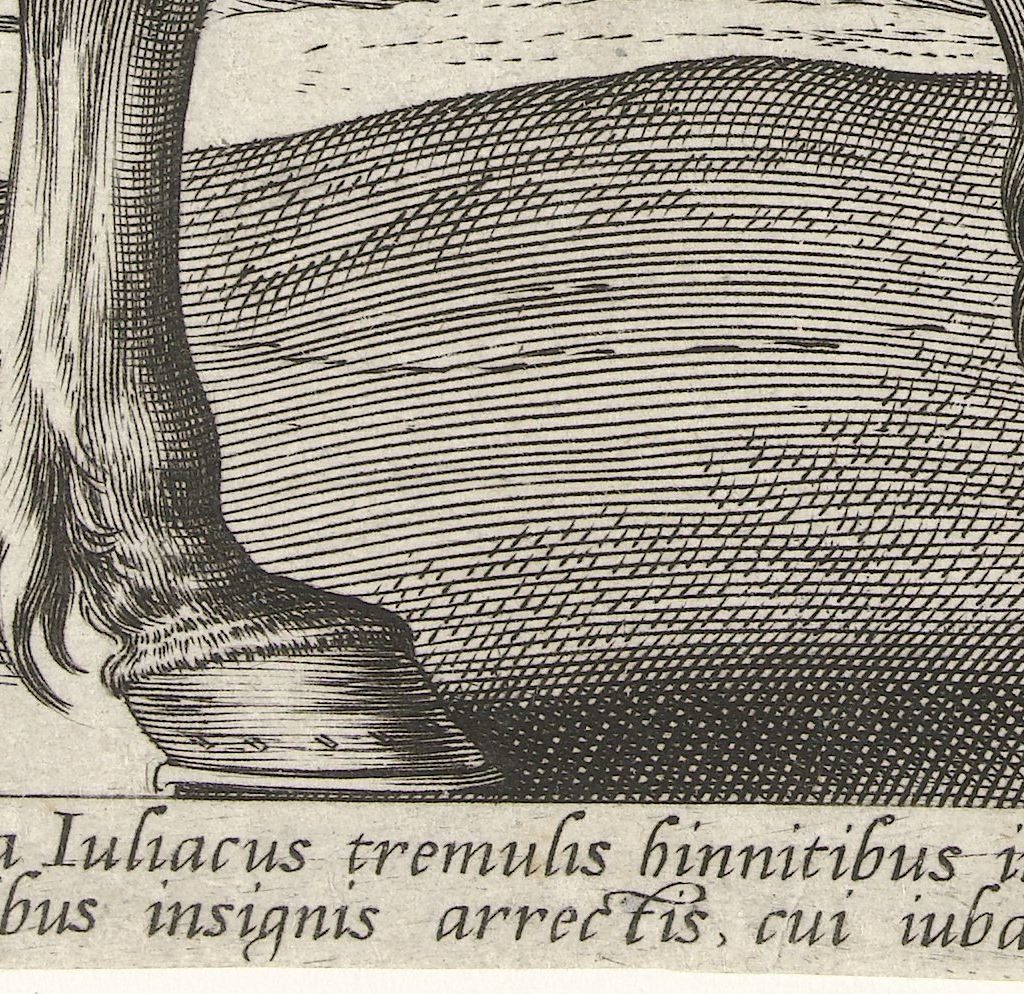 a Iuliacus tremulis hinnitibus i
bus insignis arrectis, cui iuba